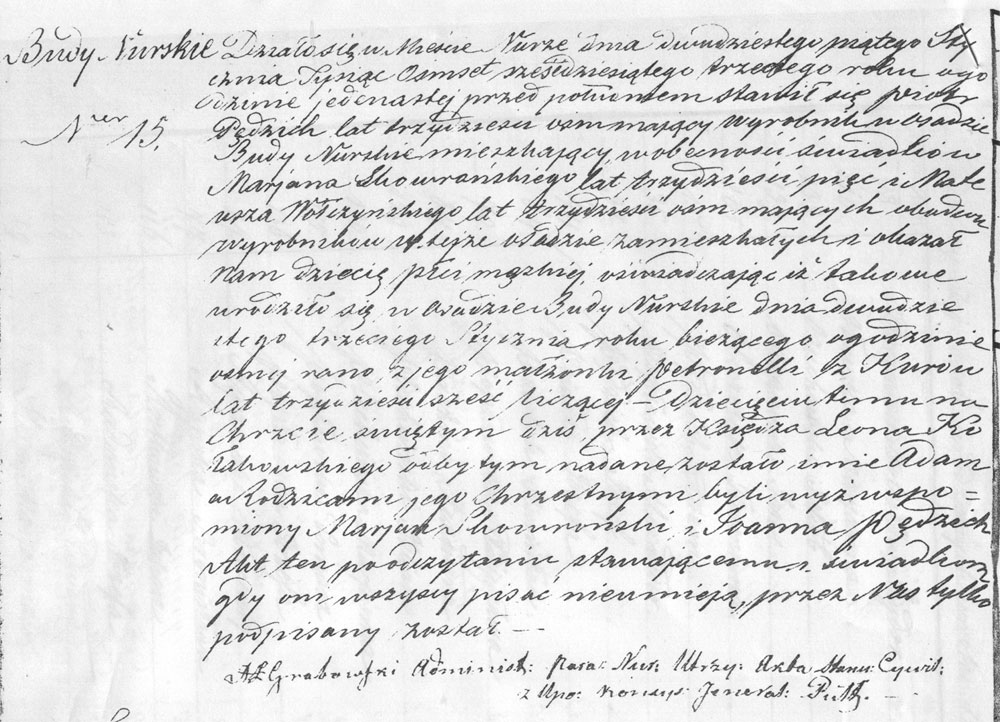 Budy Nurskie Działo się w Mieście Nurze dnia dwudziestego piątego Sty
cznia Tysiąc Osmset sześćdziesiątego trzeciego roku o go
dzinie jedenastej przed południem stawił się Piotr
Nrer 15. Pędzich lat trzydzieści osm mający wyrobnik w osadzie
Budy Nurskie mieszkający, w obecności świadków
Marjana Skowrońskiego lat trzydzieści pięć i Mate
usza Wółczyńskiego lat trzydzieści osm mających obudwu
wyrobników w tejże osadzie zamieszkałych i okazał
Nam dziecię płci męzkiej, oświadczając iż takowe
urodziło się w osadzie Budy Nurskie dnia dwudzie
stego trzeciego Stycznia roku bieżącego o godzinie
osmej rano, z jego małżonki Petronelli z Kurów
lat trzydzieści sześć liczącej – Dziecięciu temu na
Chrzcie świętym dziś przez Księdza Leona Ko
łakowskiego odbytym nadane zostało imie Adam
a Rodzicami jego Chrzestnymi byli wyż wspo=
miony Marjan Skowroński i Joanna Pędzich
Akt ten po odczytaniu stawającemu i świadkom
gdy oni wszyscy pisać nieumieją, przez Nas tylko
podpisany został. —
Grabowski Administ: Para: Nur: Utrzy: Akta Stanu: Cywil:
z Upo: Konsys: Jeneral: Pułt. —